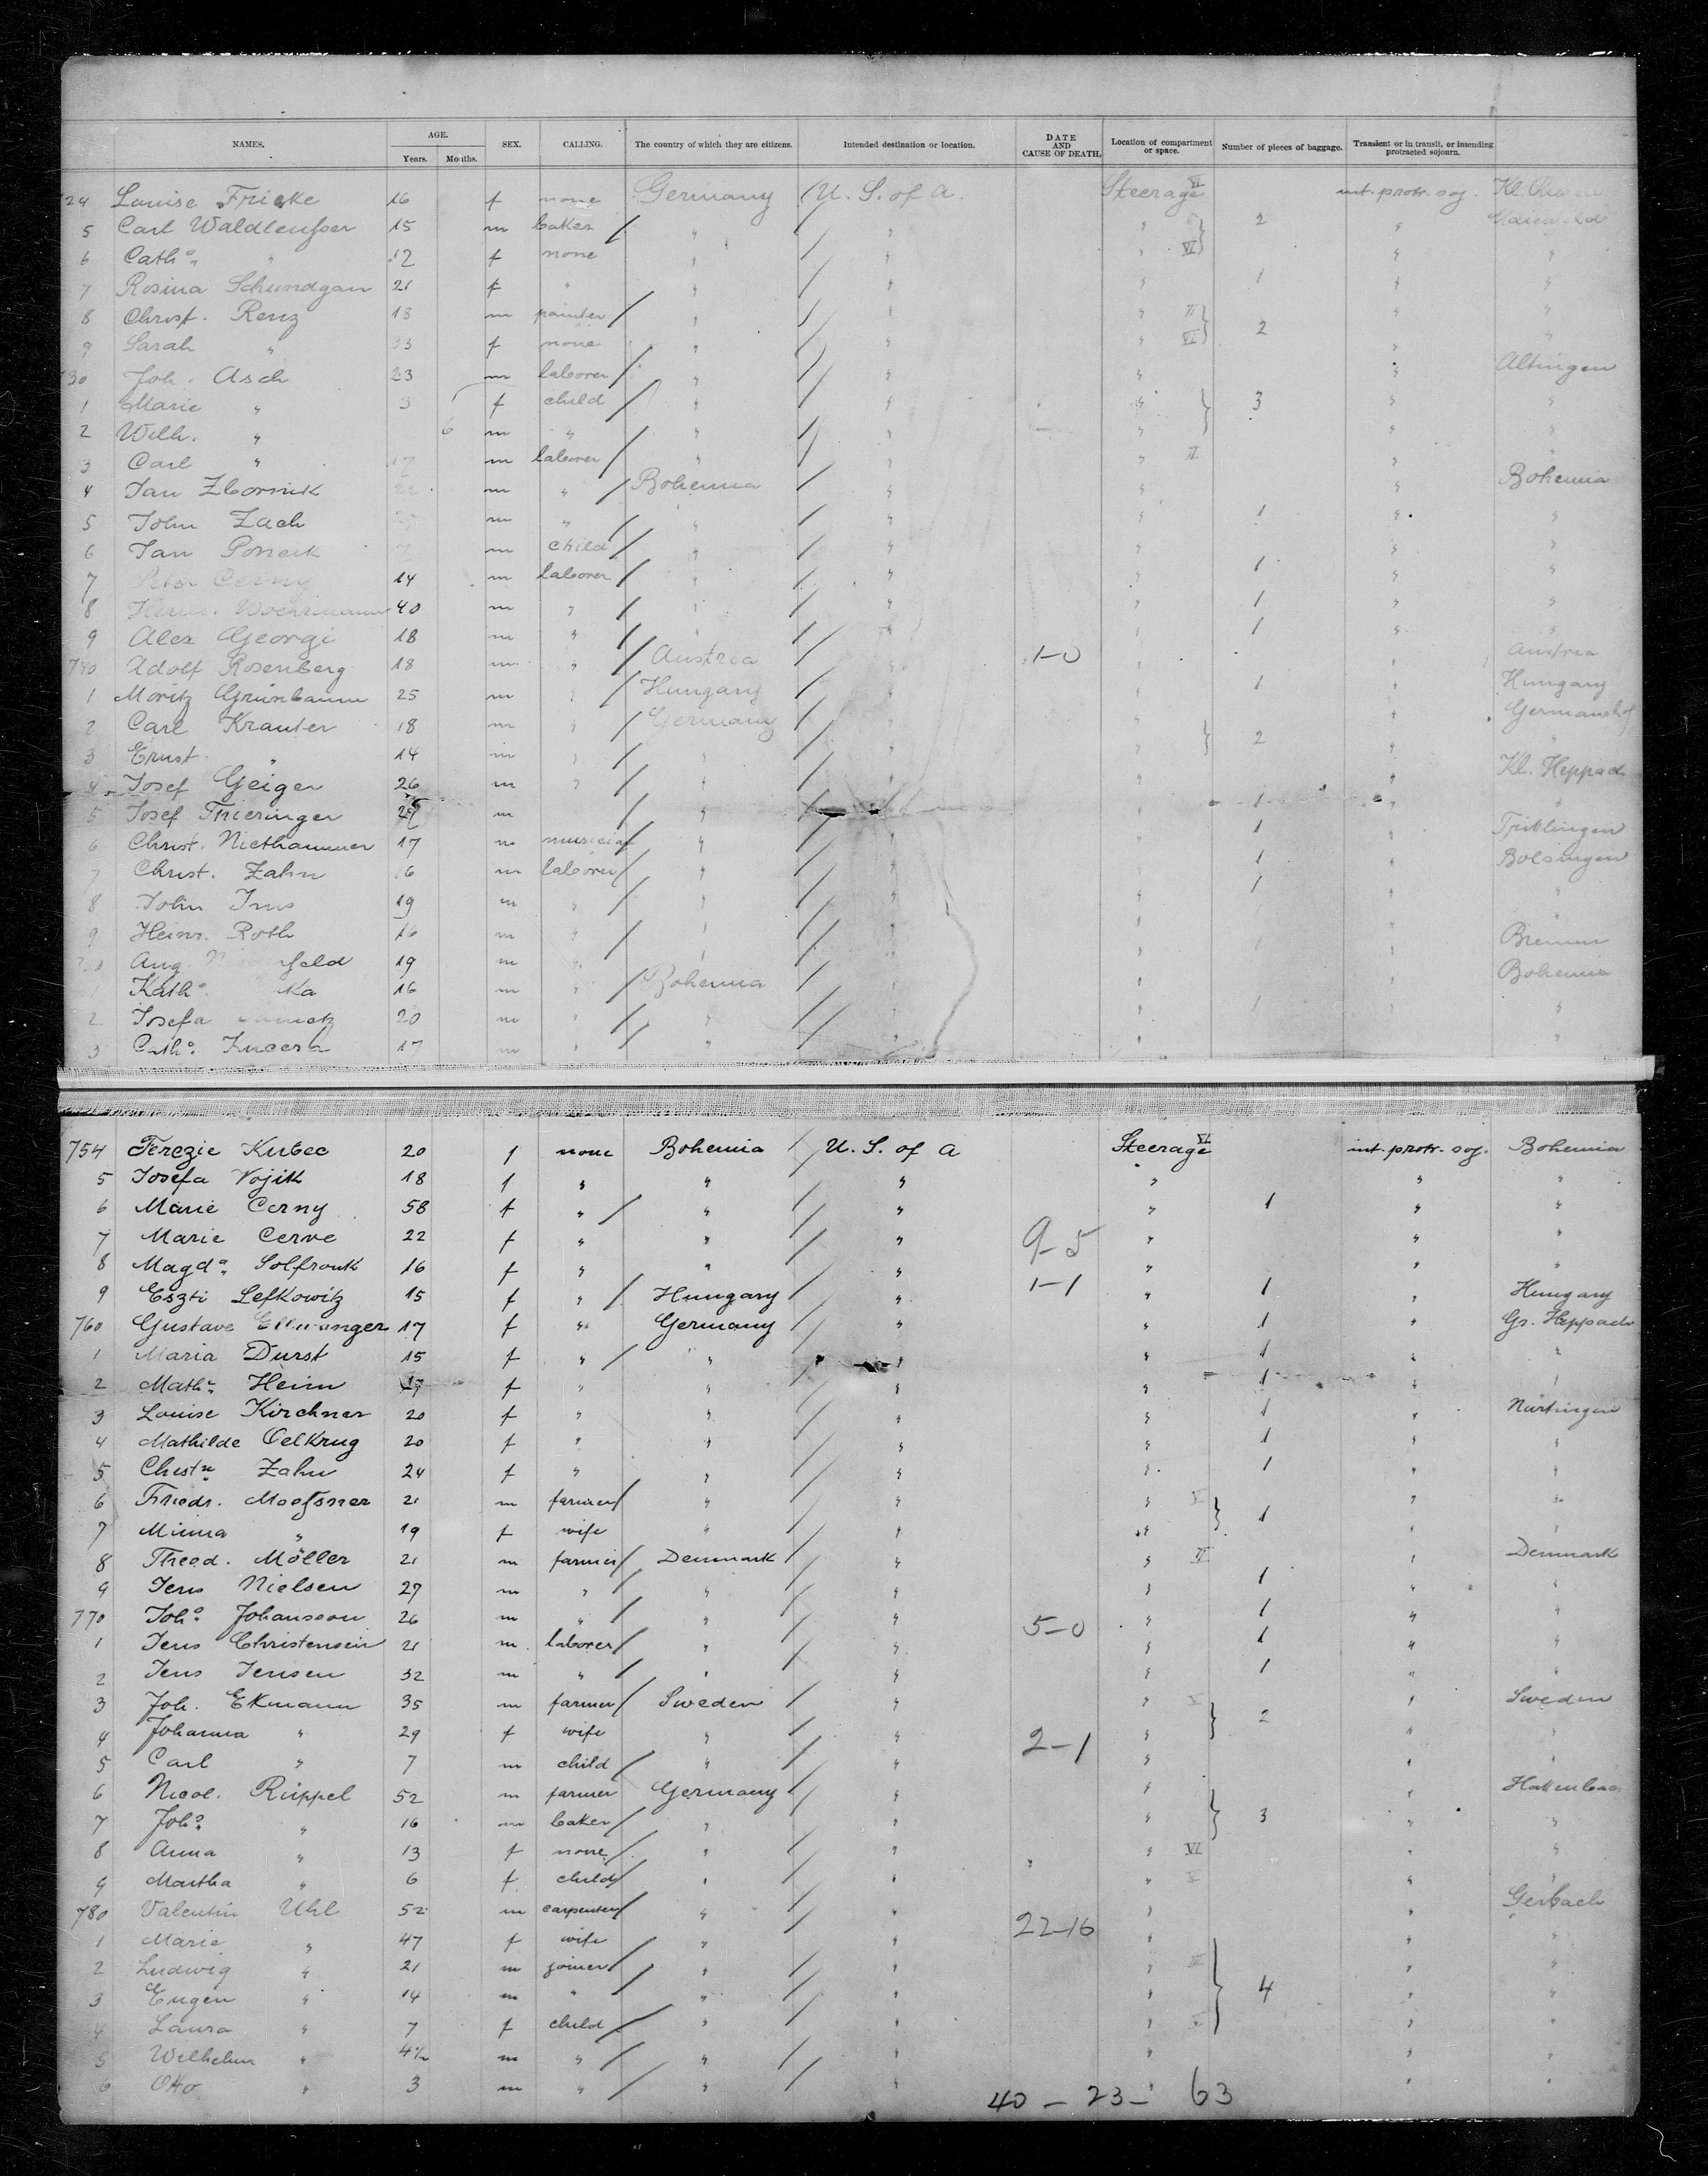 NAMES. AGE. Years. Months. SEX. CALLING. The country of which they are citizens. Intended destination or location. DATE AND CAUSE OF DEATH. Location of compartment or space. Number of pieces of baggage. Transient or in transit, or intending protracted sojourn.
724 Louise Fricke 16 f none Germany U. S. of A. Steerage VI int. protr. soj. Kl.
5 Carl Waldleufser 15 m baker / " / " " 2 "
6 Cath.a " 12 f none " / " " VI " "
7 Rosina Schundgan 21 f " " / " " 1 " "
8 Christ. Renz 18 m painter / " / " " II 2 " "
9 Sarah " 33 f none " / " " VI " "
730 Joh. Asch 23 m laborer / " / " " " Altingen
1 Marie " 3 f child / " / " " 3 " "
2 Wilh. " 6 m " / " / " " " "
3 Carl " 17 m laborer / " / " " II " "
4 Jan Zbornik 22 m " / Bohemia / " " " Bohemia
5 John Zach m " / " / " " 1 " "
6 Jan 7 m child / " / " " " "
7 Peter Cerny 14 m laborer / " / " " 1 " "
8 40 m " / " / " " 1 " "
9 Alex Georgi 18 m " / " / " " 1 " "
740 Adolf Rosenberg 18 m " / Austria / " 1-0 " " Austria
1 Moritz Grünbaum 25 m " / Hungary / " " 1 " Hungary
2 Carl Krauter 18 m " / Germany / " " 2 " Germanshof
3 Ernst " 14 m " / " / " " " "
4 Josef Geiger 26 m " / " / " " " Kl. Heppach
5 Josef Thieringer 25 m / " / " " 1 " "
6 Christ. Niethammer 17 m musician " / " " 1 " Trichtingen
7 Christ. Zahn 16 m laborer / " / " " 1 " Bolsingen
8 John Irus 19 m " / " / " " 1 " "
9 Heinr. Roth 16 m " / " / " " " "
750 Aug. feld 19 m " " / " " 1 " Bremen
1 Kath.a ka 16 m " / Bohemia / " " " Bohemia
2 Josefa 20 m " " / " " 1 " "
3 Cath.a Kucera 17 m " " / " " " "
754 Terezie Kubec 20 f none Bohemia / U. S. of A Steerage VI int. protr. soj. Bohemia
5 Josefa Vojik 18 f " " / " " " "
6 Marie Cerny 58 f " / " / " " 1 " "
7 Marie Cerve 22 f " " / " 9-5 " " "
8 Magd.a Solfronk 16 f " " / " " " "
9 Eszti Lefkowitz 15 f " / Hungary / " 1-1 " 1 " Hungary
760 Gustave Ellwanger 17 f " Germany / " " 1 " Gr. Heppach
1 Maria Durst 15 f " / " / " " 1 " "
2 Math.e Heim 17 f " " / " " 1 " "
3 Louise Kirchner 20 f " " / " " 1 " Nürtingen
4 Mathilde Oelkrug 20 f " " / " " 1 " "
5 Christ.ne Zahn 24 f " " / " " 1 " "
6 Friedr. Moefsner 21 m farmer / " / " " V 1 " "
7 Minna " 19 f wife " / " " " "
8 Theod. Möller 21 m farmer / Denmark / " " II " Denmark
9 Jens Nielsen 27 m " / " / " " 1 " "
770 Joh.a Johansson 26 m " / " / " 5-0 " 1 " "
1 Jens Christensen 21 m laborer / " / " " 1 " "
2 Jens Jensen 32 m " / " / " " 1 " "
3 Joh. Ekmann 35 m farmer / Sweden / " " V 2 " Sweden
4 Johanna " 29 f wife " / " 2-1 " " "
5 Carl " 7 m child / " / " " " "
6 Nicol. Rüppel 52 m farmer Germany / " " 3 " Hattenbach
7 Joh.a " 16 m baker / " / " " " "
8 Anna " 13 f none / " / " " VI " "
9 Martha " 6 f child / " / " " V " "
780 Valentin Uhl 52 m carpenter / " / " 22-16 " " Gerbach
1 Marie " 47 f wife / " / " " " "
2 Ludwig " 21 m joiner / " / " " 4 " "
3 Eugen " 14 m " / " / " " " "
4 Laura " 7 f child / " / " " V " "
5 Wilhelm " 4½ m " / " / " " " "
6 Otto " 3 m " / " / " " " "
40 - 23 - 63